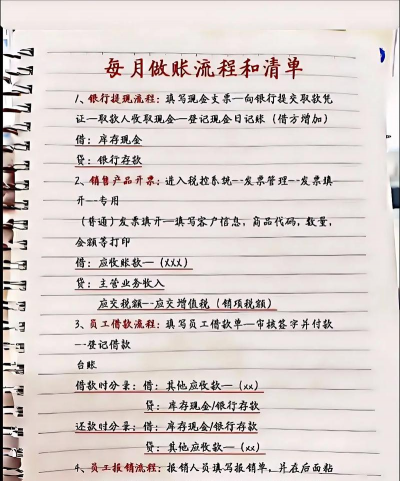 每月做账流程和清单
1、银行提现流程：填写现金支票—向银行提交取款凭
证—取款人收取现金—登记现金日记账（借方增加）
借：库存现金
贷：银行存款
2、销售产品开票：进入税控系统--发票管理--发票填
开--专用
（普通）发票填开—填写客户信息，商品代码，数量，
金额等打印
借：应收账款—（XXX）
贷：主营业务收入
应交税额--应交增值税（销项税额）
3、员工借款流程：填写员工借款单—审核签字并付款
—-登记借款
台账
借款时分录：借：其他应收款—（xx）
贷：库存现金/银行存款
还款时分录：借：库存现金/银行存款
贷：其他应收款—（xx）
4、员工报销流程：报销人员填写报销单，并在后面黏